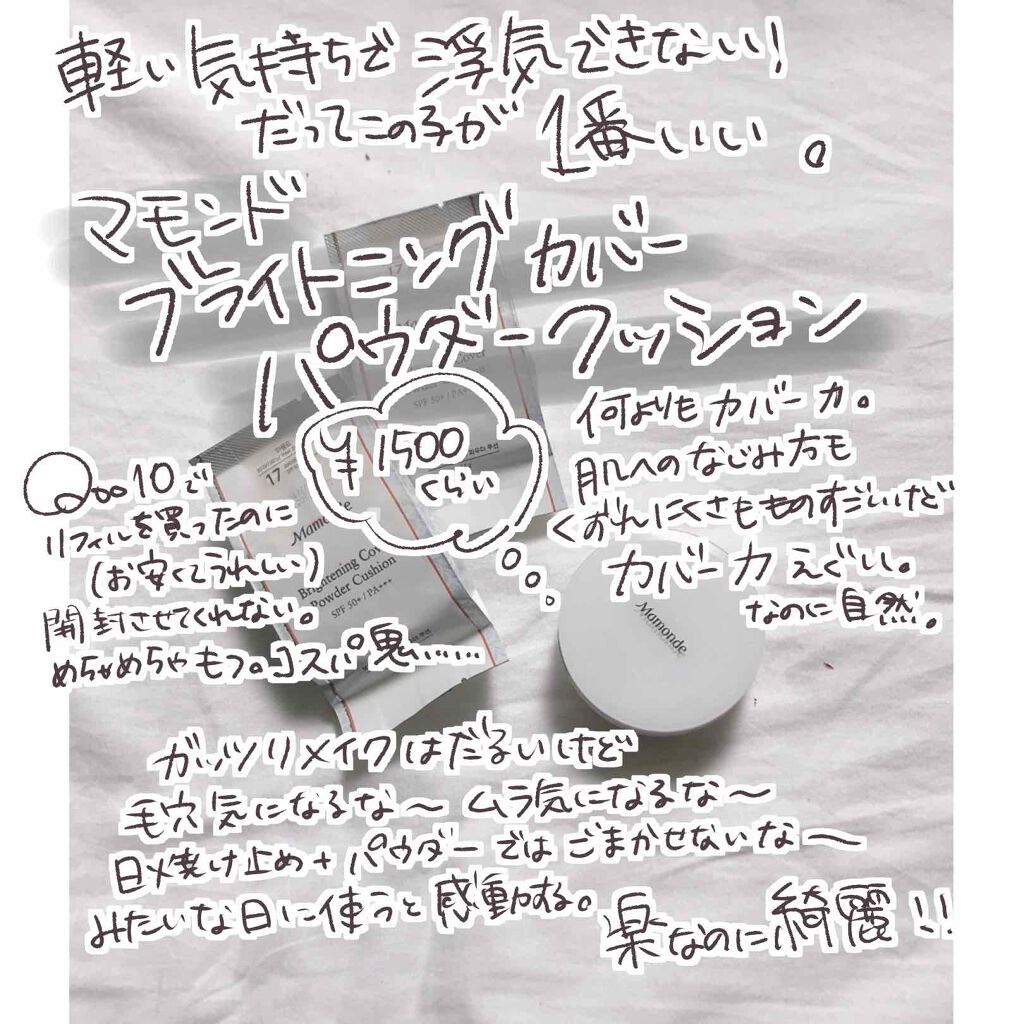 軽い気持ちで浮気できない!
だってこの子が1番いい。
マモンド
ブライトニングカバー
パウダークッション
¥1500
くらい
何よりもカバー力。
肌へのなじみ方も
くずれにくさもものすごいけど
カバー力えぐい。
なのに自然。
Qoo10で
リフィルを買ったのに
(お安くてうれしい)
開封させてくれない。
めちゃめちゃもつ。コスパ鬼……
17
Mamonde
Brightening Cover
Powder Cushion
SPF 50+ / PA+++
17
Cover
SPF 50+ / PA+++
Mamonde
ガッツリメイクはだるいけど
毛穴気になるな〜 ムラ気になるな〜
日メ焼け止め+パウダーではごまかせないな〜
みたいな日に使うと感動する。
楽なのに綺麗!!